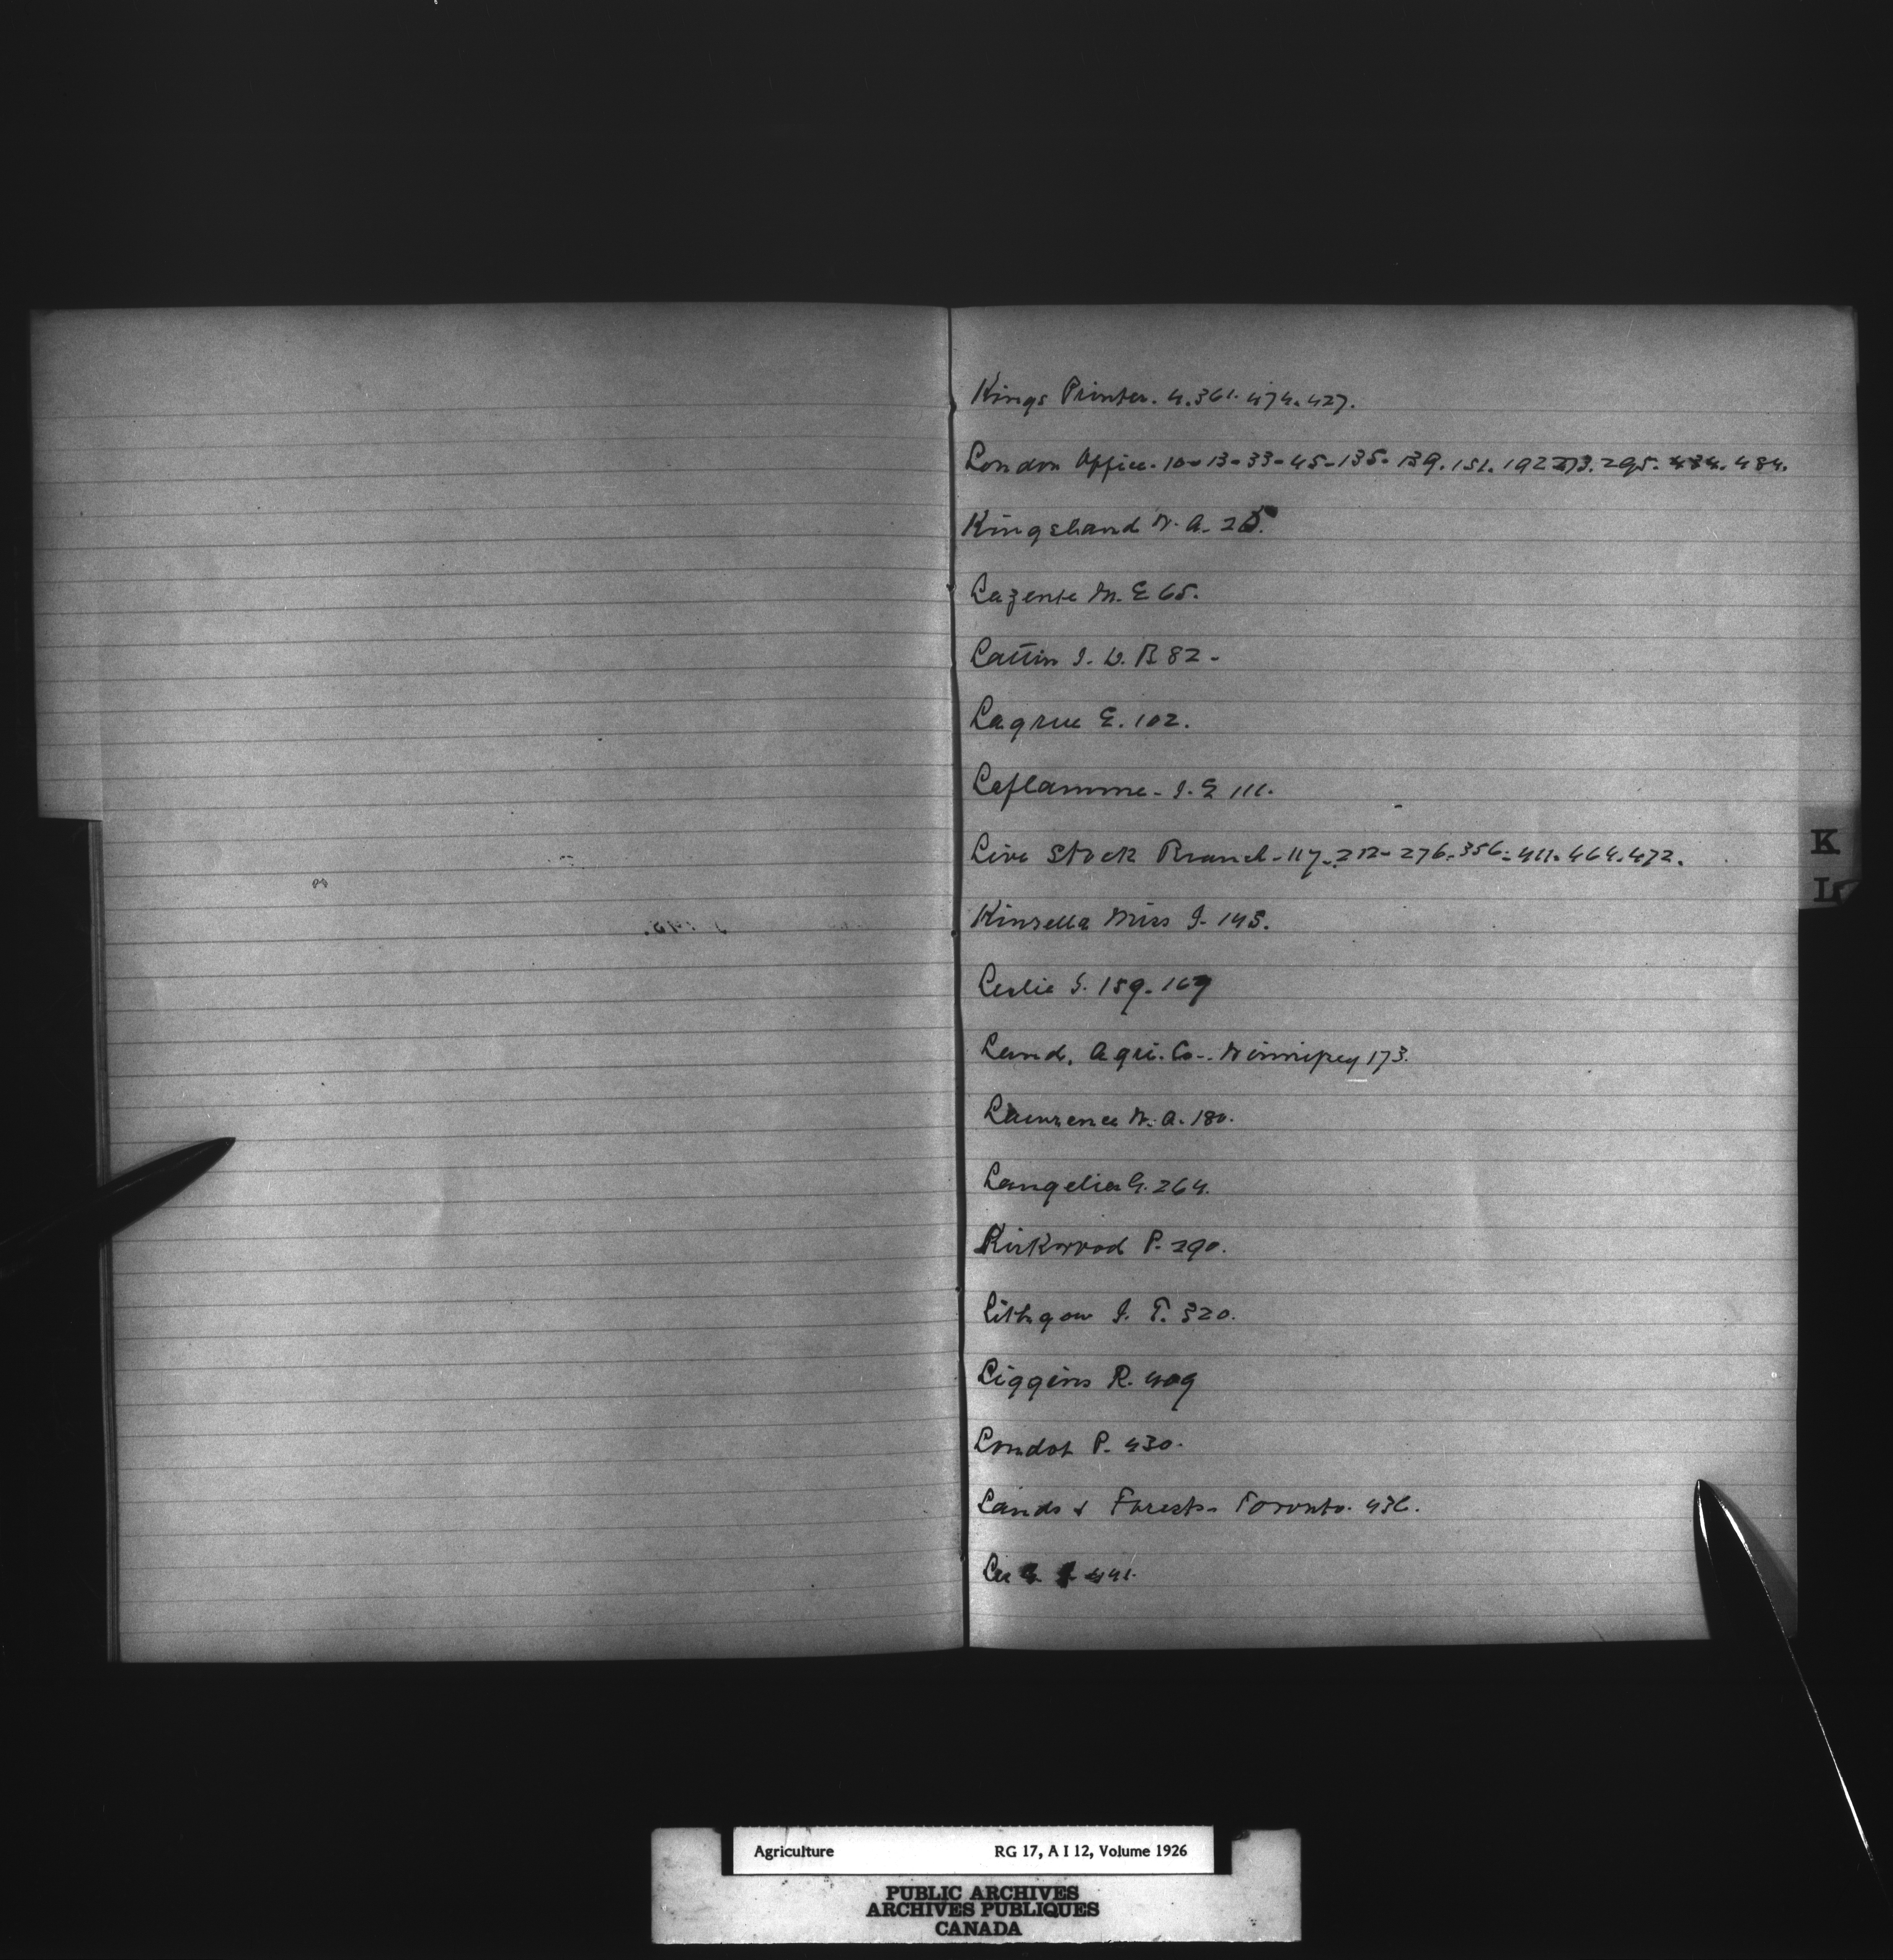 Kings Printer. 4.361. 474. 427.
London Office. 10-13-33-45-135-139. 151. 192 273. 295. 434. 484.
Kingsland W. A. 25.
Lazente M. E 65.
Lattin J. D. B 82 -
Lagrue E. 102.
Leflamme - J. E 111.
Live Stock Branch - 117 - 212 - 276 - 356 - 411. 464. 472.
K
L
Kinsella Miss J. 145.
Leslie G. 159. 169
Land, Agri. Co. - Winnipeg 173.
Lawrence W. A. 180.
Langelier G. 264.
Kirkwood P. 290.
Lithgow J. T. 320.
Liggins R. 409
Londot P. 430.
Lands & Forests - Toronto. 436.
Lee 441.
Agriculture RG 17, A I 12, Volume 1926
PUBLIC ARCHIVES
ARCHIVES PUBLIQUES
CANADA